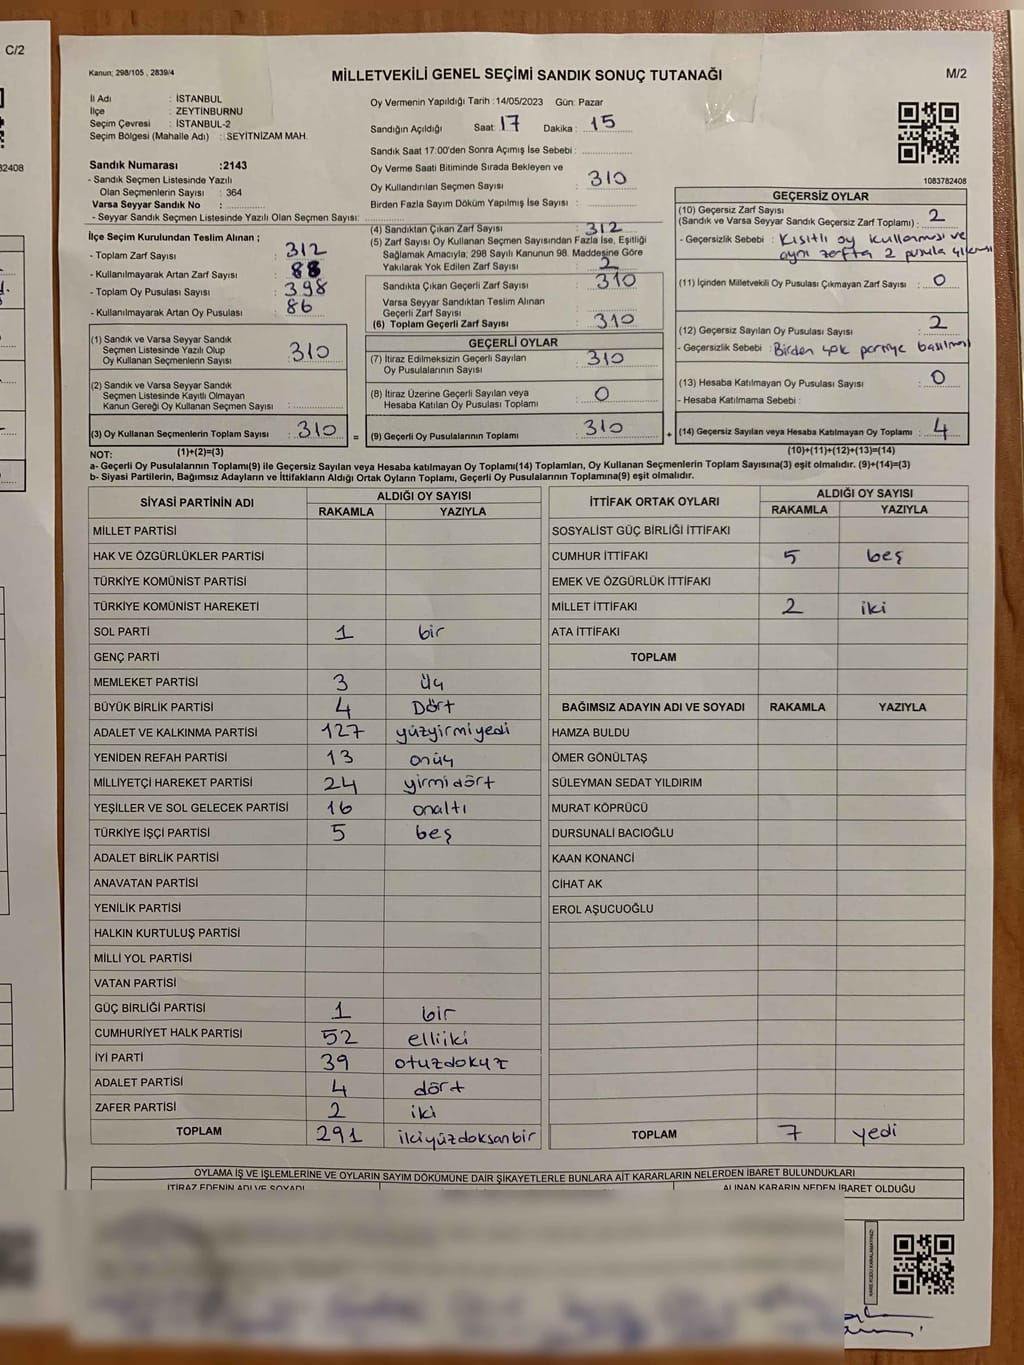 C/2
32408
Kanun; 298/105 , 2839/4
MİLLETVEKİLİ GENEL SEÇİMİ SANDIK SONUÇ TUTANAĞI
M/2
İl Adı : İSTANBUL
İlçe : ZEYTİNBURNU
Seçim Çevresi : İSTANBUL-2
Seçim Bölgesi (Mahalle Adı) : SEYİTNİZAM MAH.
Sandık Numarası :2143
- Sandık Seçmen Listesinde Yazılı
Olan Seçmenlerin Sayısı : 364
Varsa Seyyar Sandık No :
- Seyyar Sandık Seçmen Listesinde Yazılı Olan Seçmen Sayısı:
Oy Vermenin Yapıldığı Tarih : 14/05/2023 Gün: Pazar
Sandığın Açıldığı Saat: 17 Dakika : 15
Sandık Saat 17:00'den Sonra Açımış İse Sebebi :
Oy Verme Saati Bitiminde Sırada Bekleyen ve
Oy Kullandırılan Seçmen Sayısı : 310
Birden Fazla Sayım Döküm Yapılmış İse Sayısı :
1083782408
İlçe Seçim Kurulundan Teslim Alınan ;
- Toplam Zarf Sayısı : 312
- Kullanılmayarak Artan Zarf Sayısı : 88
- Toplam Oy Pusulası Sayısı : 398
- Kullanılmayarak Artan Oy Pusulası : 86
(1) Sandık ve Varsa Seyyar Sandık
Seçmen Listesinde Yazılı Olup
Oy Kullanan Seçmenlerin Sayısı : 310
(2) Sandık ve Varsa Seyyar Sandık
Seçmen Listesinde Kayıtlı Olmayan
Kanun Gereği Oy Kullanan Seçmen Sayısı :
(3) Oy Kullanan Seçmenlerin Toplam Sayısı : 310
(1)+(2)=(3)
(4) Sandıktan Çıkan Zarf Sayısı : 312
(5) Zarf Sayısı Oy Kullanan Seçmen Sayısından Fazla İse, Eşitliği
Sağlamak Amacıyla, 298 Sayılı Kanunun 98. Maddesine Göre
Yakılarak Yok Edilen Zarf Sayısı : 2
Sandıkta Çıkan Geçerli Zarf Sayısı : 310
Varsa Seyyar Sandıktan Teslim Alınan
Geçerli Zarf Sayısı :
(6) Toplam Geçerli Zarf Sayısı : 310
GEÇERLİ OYLAR
(7) İtiraz Edilmeksizin Geçerli Sayılan
Oy Pusulalarının Sayısı : 310
(8) İtiraz Üzerine Geçerli Sayılan veya
Hesaba Katılan Oy Pusulası Toplamı : 0
= (9) Geçerli Oy Pusulalarının Toplamı : 310
GEÇERSİZ OYLAR
(10) Geçersiz Zarf Sayısı
(Sandık ve Varsa Seyyar Sandık Geçersiz Zarf Toplamı) : 2
- Geçersizlik Sebebi : Kısıtlı oy kullanması ve
aynı zarfta 2 pusula çıkması
(11) İçinden Milletvekili Oy Pusulası Çıkmayan Zarf Sayısı : 0
(12) Geçersiz Sayılan Oy Pusulası Sayısı : 2
- Geçersizlik Sebebi : Birden çok partiye basılması
(13) Hesaba Katılmayan Oy Pusulası Sayısı : 0
- Hesaba Katılmama Sebebi :
+ (14) Geçersiz Sayılan veya Hesaba Katılmayan Oy Toplamı : 4
(10)+(11)+(12)+(13)=(14)
NOT:
a- Geçerli Oy Pusulalarının Toplamı(9) ile Geçersiz Sayılan veya Hesaba katılmayan Oy Toplamı(14) Toplamları, Oy Kullanan Seçmenlerin Toplam Sayısına(3) eşit olmalıdır. (9)+(14)=(3)
b- Siyasi Partilerin, Bağımsız Adayların ve İttifakların Aldığı Ortak Oyların Toplamı, Geçerli Oy Pusulalarının Toplamına(9) eşit olmalıdır.
SİYASİ PARTİNİN ADI ALDIĞI OY SAYISI
RAKAMLA YAZIYLA
MİLLET PARTİSİ
HAK VE ÖZGÜRLÜKLER PARTİSİ
TÜRKİYE KOMÜNİST PARTİSİ
TÜRKİYE KOMÜNİST HAREKETİ
SOL PARTİ 1 bir
GENÇ PARTİ
MEMLEKET PARTİSİ 3 üç
BÜYÜK BİRLİK PARTİSİ 4 Dört
ADALET VE KALKINMA PARTİSİ 127 yüzyirmiyedi
YENİDEN REFAH PARTİSİ 13 onüç
MİLLİYETÇİ HAREKET PARTİSİ 24 yirmidört
YEŞİLLER VE SOL GELECEK PARTİSİ 16 onaltı
TÜRKİYE İŞÇİ PARTİSİ 5 beş
ADALET BİRLİK PARTİSİ
ANAVATAN PARTİSİ
YENİLİK PARTİSİ
HALKIN KURTULUŞ PARTİSİ
MİLLİ YOL PARTİSİ
VATAN PARTİSİ
GÜÇ BİRLİĞİ PARTİSİ 1 bir
CUMHURİYET HALK PARTİSİ 52 elliiki
İYİ PARTİ 39 otuzdokuz
ADALET PARTİSİ 4 dört
ZAFER PARTİSİ 2 iki
TOPLAM 291 ikiyüzdoksanbir
İTTİFAK ORTAK OYLARI ALDIĞI OY SAYISI
RAKAMLA YAZIYLA
SOSYALİST GÜÇ BİRLİĞİ İTTİFAKI
CUMHUR İTTİFAKI 5 beş
EMEK VE ÖZGÜRLÜK İTTİFAKI
MİLLET İTTİFAKI 2 iki
ATA İTTİFAKI
TOPLAM
BAĞIMSIZ ADAYIN ADI VE SOYADI RAKAMLA YAZIYLA
HAMZA BULDU
ÖMER GÖNÜLTAŞ
SÜLEYMAN SEDAT YILDIRIM
MURAT KÖPRÜCÜ
DURSUNALİ BACIOĞLU
KAAN KONANCİ
CİHAT AK
EROL AŞUCUOĞLU
TOPLAM 7 yedi
OYLAMA İŞ VE İŞLEMLERİNE VE OYLARIN SAYIM DÖKÜMÜNE DAİR ŞİKAYETLERLE BUNLARA AİT KARARLARIN NELERDEN İBARET BULUNDUKLARI
İTİRAZ EDENİN ADI VE SOYADI
ALINAN KARARIN NEDEN İBARET OLDUĞU